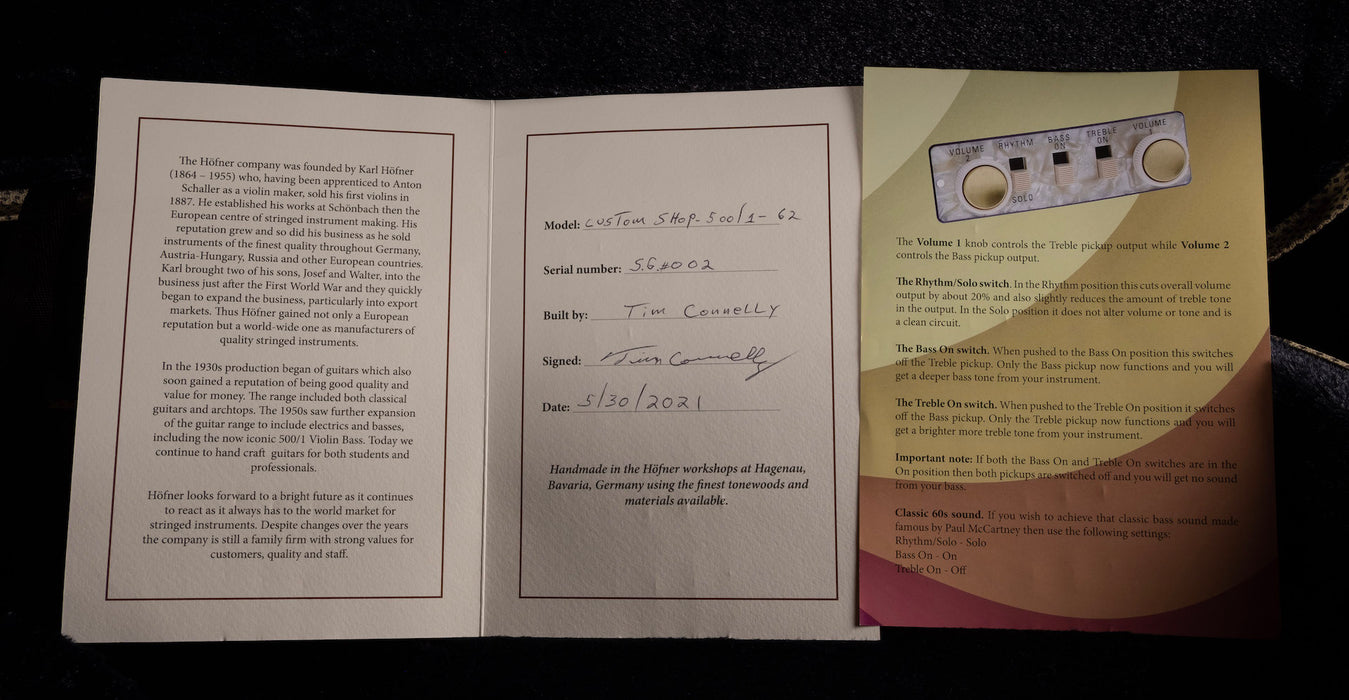 The Höfner company was founded by Karl Höfner
(1864 – 1955) who, having been apprenticed to Anton
Schaller as a violin maker, sold his first violins in
1887. He established his works at Schönbach then the
European centre of stringed instrument making. His
reputation grew and so did his business as he sold
instruments of the finest quality throughout Germany,
Austria-Hungary, Russia and other European countries.
Karl brought two of his sons, Josef and Walter, into the
business just after the First World War and they quickly
began to expand the business, particularly into export
markets. Thus Höfner gained not only a European
reputation but a world-wide one as manufacturers of
quality stringed instruments.
In the 1930s production began of guitars which also
soon gained a reputation of being good quality and
value for money. The range included both classical
guitars and archtops. The 1950s saw further expansion
of the guitar range to include electrics and basses,
including the now iconic 500/1 Violin Bass. Today we
continue to hand craft guitars for both students and
professionals.
Höfner looks forward to a bright future as it continues
to react as it always has to the world market for
stringed instruments. Despite changes over the years
the company is still a family firm with strong values for
customers, quality and staff.
Model: CUSTOM SHOP-500/1-62
Serial number: S.G.#002
Built by: Tim Connelly
Signed: Tim Connelly
Date: 5/30/2021
Handmade in the Höfner workshops at Hagenau,
Bavaria, Germany using the finest tonewoods and
materials available.
VOLUME 2
RHYTHM
SOLO
BASS ON
TREBLE ON
VOLUME 1
The Volume 1 knob controls the Treble pickup output while Volume 2
controls the Bass pickup output.
The Rhythm/Solo switch. In the Rhythm position this cuts overall volume
output by about 20% and also slightly reduces the amount of treble tone
in the output. In the Solo position it does not alter volume or tone and is
a clean circuit.
The Bass On switch. When pushed to the Bass On position this switches
off the Treble pickup. Only the Bass pickup now functions and you will
get a deeper bass tone from your instrument.
The Treble On switch. When pushed to the Treble On position it switches
off the Bass pickup. Only the Treble pickup now functions and you will
get a brighter more treble tone from your instrument.
Important note: If both the Bass On and Treble On switches are in the
On position then both pickups are switched off and you will get no sound
from your bass.
Classic 60s sound. If you wish to achieve that classic bass sound made
famous by Paul McCartney then use the following settings:
Rhythm/Solo - Solo
Bass On - On
Treble On - Off